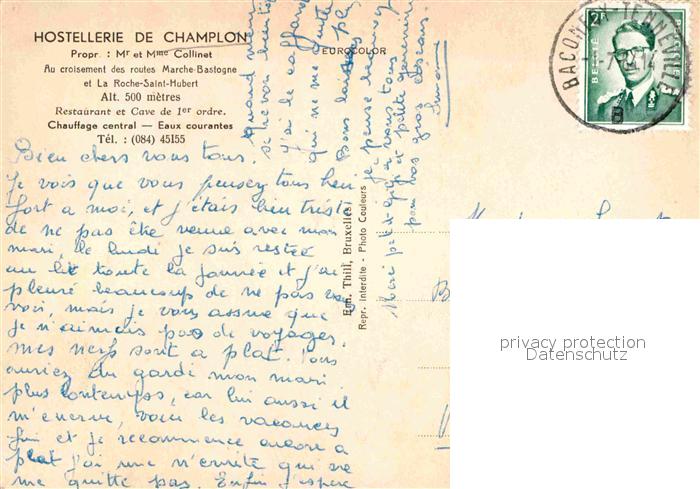 HOSTELLERIE DE CHAMPLON
Propr. : Mr et Mme Collinet
Au croisement des routes Marche-Bastogne
et La Roche-Saint-Hubert
Alt. 500 mètres
Restaurant et Cave de 1er ordre.
Chauffage central — Eaux courantes
Tél. : (084) 45155
Bien chers vous tous.
Je vois que vous pensez tous bien
fort a moi, et j'étais bien triste
de ne pas être venue avec mon
mari, le lundi je suis restée
au lit toute la journée et j'ai
pleuré beaucoup de ne pas vous
voir, mais je vous assure que
je n'aimais pas de voyages.
mes nerfs sont a plat. Vous
auriez du gardé mon mari
plus longtemps, car lui aussi il
m'énerve, voici les vacances
fini et je recommence encore a
plat j'ai une névrite qui ne
me quitte pas. Enfin j'espère
quand
j'ai le cafard
qui ne me quitte
plus
je pense beaucoup
a vous tous
et petite
pour vos gros
Merci petit
EUROCOLOR
Em. Thill, Bruxelles
Repr. Interdite - Photo Couleurs
2F
BELGIE
BACONFOY-TENNEVILLE
14
privacy protection
Datenschutz